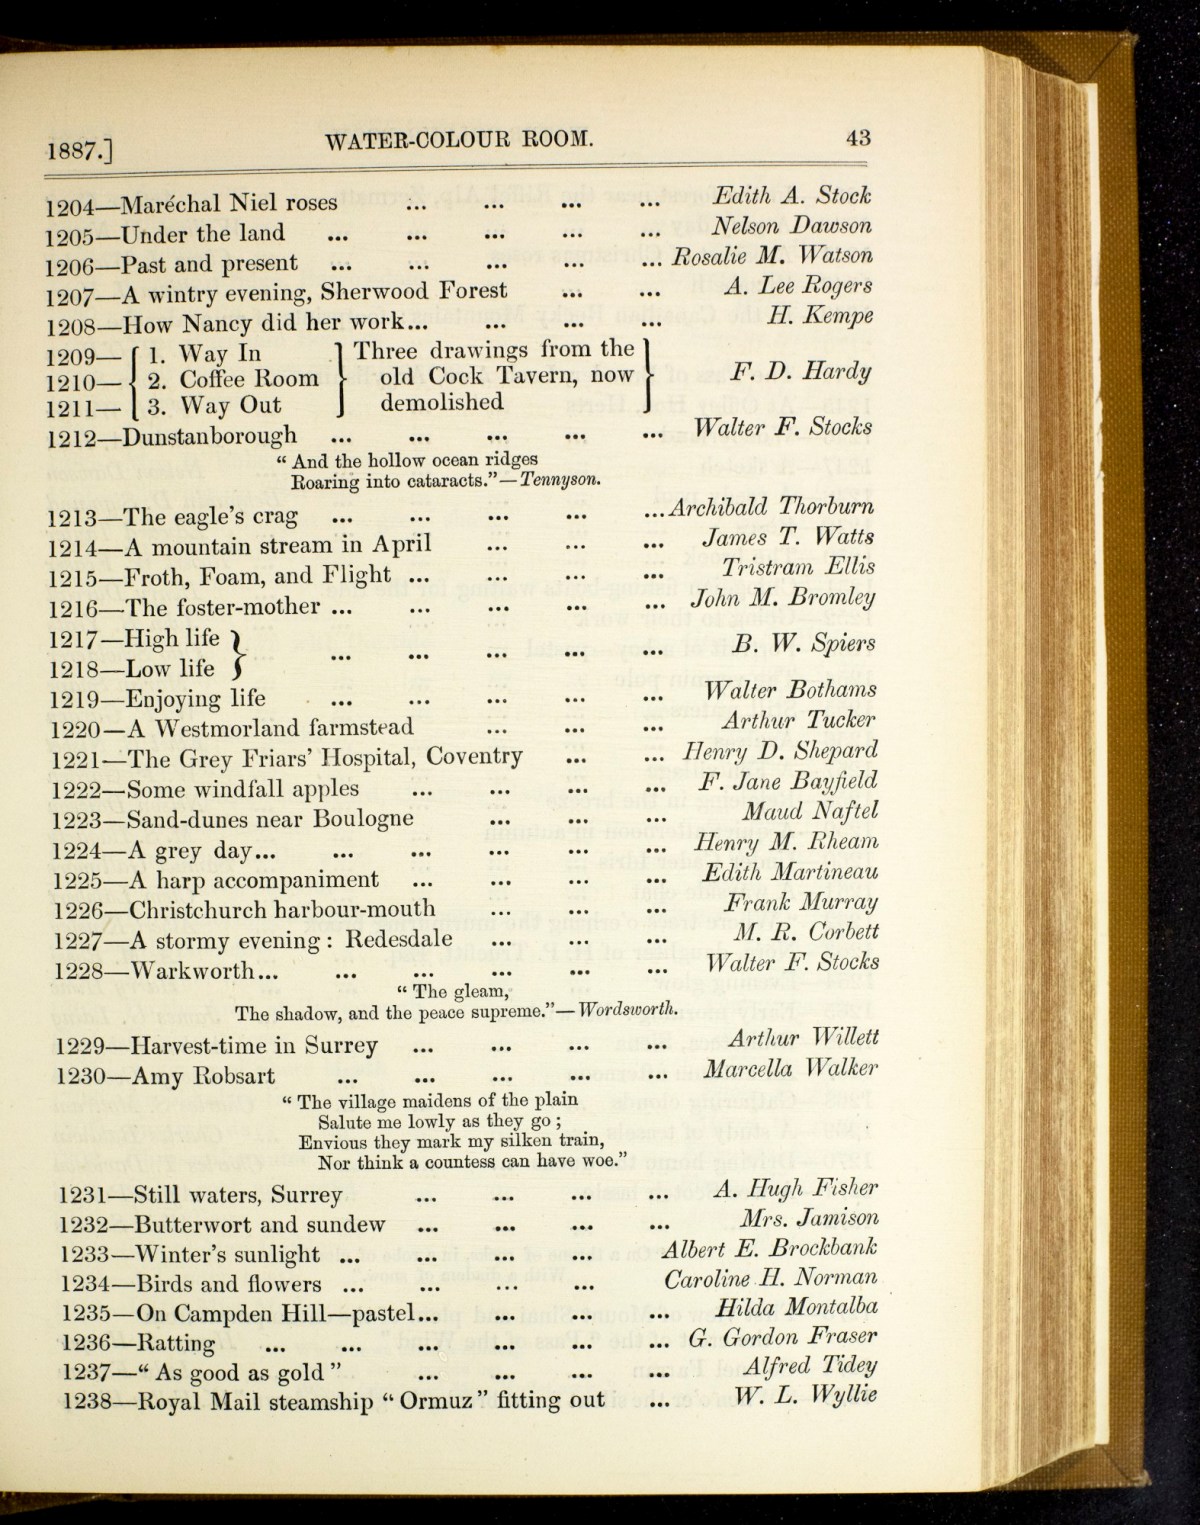 1887.] WATER-COLOUR ROOM. 43
1204—Maréchal Niel roses ... ... ... ... Edith A. Stock
1205—Under the land ... ... ... ... ... Nelson Dawson
1206—Past and present ... ... ... ... ... Rosalie M. Watson
1207—A wintry evening, Sherwood Forest ... ... A. Lee Rogers
1208—How Nancy did her work... ... ... ... H. Kempe
1209— { 1. Way In } Three drawings from the }
1210— { 2. Coffee Room } old Cock Tavern, now } F. D. Hardy
1211— { 3. Way Out } demolished }
1212—Dunstanborough ... ... ... ... ... Walter F. Stocks
“ And the hollow ocean ridges
Roaring into cataracts.”—Tennyson.
1213—The eagle’s crag ... ... ... ... ... Archibald Thorburn
1214—A mountain stream in April ... ... ... James T. Watts
1215—Froth, Foam, and Flight ... ... ... ... Tristram Ellis
1216—The foster-mother ... ... ... ... ... John M. Bromley
1217—High life }
1218—Low life } ... ... ... ... ... B. W. Spiers
1219—Enjoying life ... ... ... ... ... Walter Bothams
1220—A Westmorland farmstead ... ... ... Arthur Tucker
1221—The Grey Friars’ Hospital, Coventry ... ... Henry D. Shepard
1222—Some windfall apples ... ... ... ... F. Jane Bayfield
1223—Sand-dunes near Boulogne ... ... ... Maud Naftel
1224—A grey day... ... ... ... ... ... Henry M. Rheam
1225—A harp accompaniment ... ... ... ... Edith Martineau
1226—Christchurch harbour-mouth ... ... ... Frank Murray
1227—A stormy evening : Redesdale ... ... ... M. R. Corbett
1228—Warkworth... ... ... ... ... ... Walter F. Stocks
“ The gleam,
The shadow, and the peace supreme.”—Wordsworth.
1229—Harvest-time in Surrey ... ... ... ... Arthur Willett
1230—Amy Robsart ... ... ... ... ... Marcella Walker
“ The village maidens of the plain
Salute me lowly as they go ;
Envious they mark my silken train,
Nor think a countess can have woe.”
1231—Still waters, Surrey ... ... ... ... A. Hugh Fisher
1232—Butterwort and sundew ... ... ... ... Mrs. Jamison
1233—Winter’s sunlight ... ... ... ... Albert E. Brockbank
1234—Birds and flowers ... ... ... ... Caroline H. Norman
1235—On Campden Hill—pastel... ... ... ... Hilda Montalba
1236—Ratting ... ... ... ... ... ... G. Gordon Fraser
1237—“ As good as gold ” ... ... ... ... Alfred Tidey
1238—Royal Mail steamship “ Ormuz ” fitting out ... W. L. Wyllie